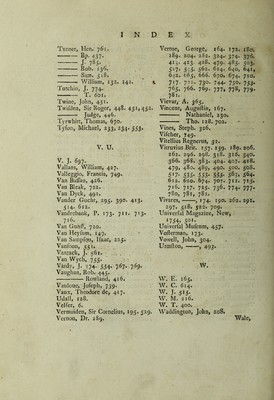 INDEX
Turner, Hen. 761.
——— Bp. 437.
——— J. 785.
——— Rob. 136.
——— Sam. 518.
——— William, 132. 141.
Tutchin, J. 774.
——— T. 601.
Twine, John, 451.
Twisden, Sir Roger, 448. 451, 452.
——— Judge, 446.
Tyrwhitt, Thomas, 670.
Tyson, Michael, 233, 234. 353.
V. U.
V. J. 697.
Vallans, William, 417.
Valleggio, Francis, 749.
Van Bassen, 426.
Van Bleak, 721.
Van Dyck, 492.
Vander Gucht, 295. 390. 413.
514. 612.
Vanderbank, P. 173. 711. 713.
716.
Van Gunst, 710.
Van Heylen, 147.
Van Sampson, Isaac, 225.
Vansoun, 551.
Vanzack, J. 561.
Van Wych, 755.
Vardy, J. 174. 554. 767. 769.
Vaughan, Rob. 445.
——— Rowland, 416.
Vauloue, Joseph, 739.
Vaux, Theodore de, 417.
Udall, 128.
Velser, 6.
Vermuiden, Sir Cornelius, 195. 529.
Vernon, Dr. 289.
Vertue, George, 164. 172. 180.
189. 204. 281. 324. 374. 376.
413. 423. 428. 479. 485. 503.
517. 535. 562. 614. 640. 641,
652. 665. 666. 670. 674. 710.
717. 721. 730. 744. 750. 753.
765, 766. 769. 771. 778. 779.
781.
Vievar, A. 365.
Vincent, Augustin, 167.
——— Nathaniel, 230.
——— Tho. 128. 702.
Vines, Steph. 326.
Vischer, 749.
Vitellius Regnerus, 31.
Vitruvius Brit. 157. 159. 189. 206.
262. 296. 306. 318. 326. 340.
366. 368. 385. 404. 407. 418.
479. 483. 489. 490. 506. 507.
517. 535. 552. 555. 563, 564.
612. 620. 674. 701. 711. 713.
716. 717. 742. 756. 774. 777.
780, 781, 782.
Vivares, ——, 174. 190. 262. 291.
297. 518. 522. 709.
Universal Magazine, New,
1754, 501.
Universal Musæum, 457.
Vosterman, 173.
Vowell, John, 304.
Urmston, ——, 493.
W.
W. E. 165.
W. C. 614.
W. J. 515.
W. M. 516.
W. T. 400.
Waddington, John, 208.
Wale,